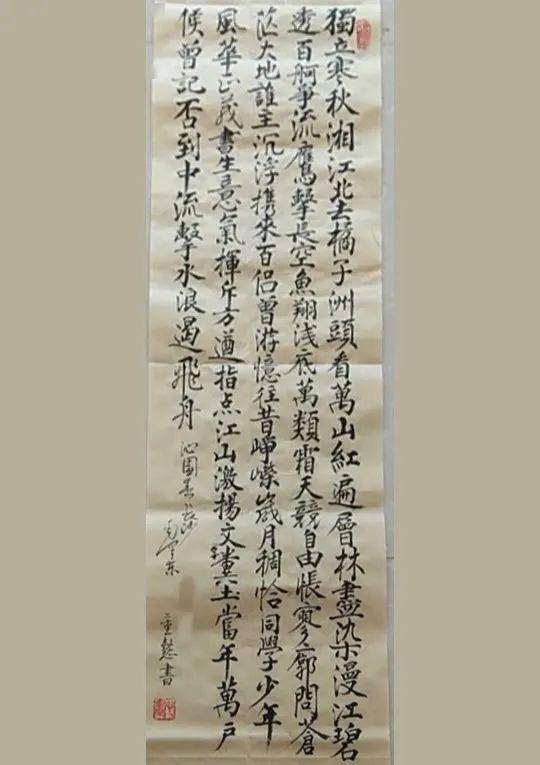 獨立寒秋湘江北去橘子洲頭看萬山紅遍層林盡染漫江碧
透百舸爭流鷹擊長空魚翔浅底萬類霜天競自由悵寥廓問蒼
茫大地誰主沉浮携來百侣曾游憶往昔崢嶸歲月稠恰同學少年
風華正茂書生意氣揮斥方遒指点江山激揚文字糞土當年萬戶
侯曾記否到中流擊水浪遏飛舟
沁園春長沙
毛澤東
書